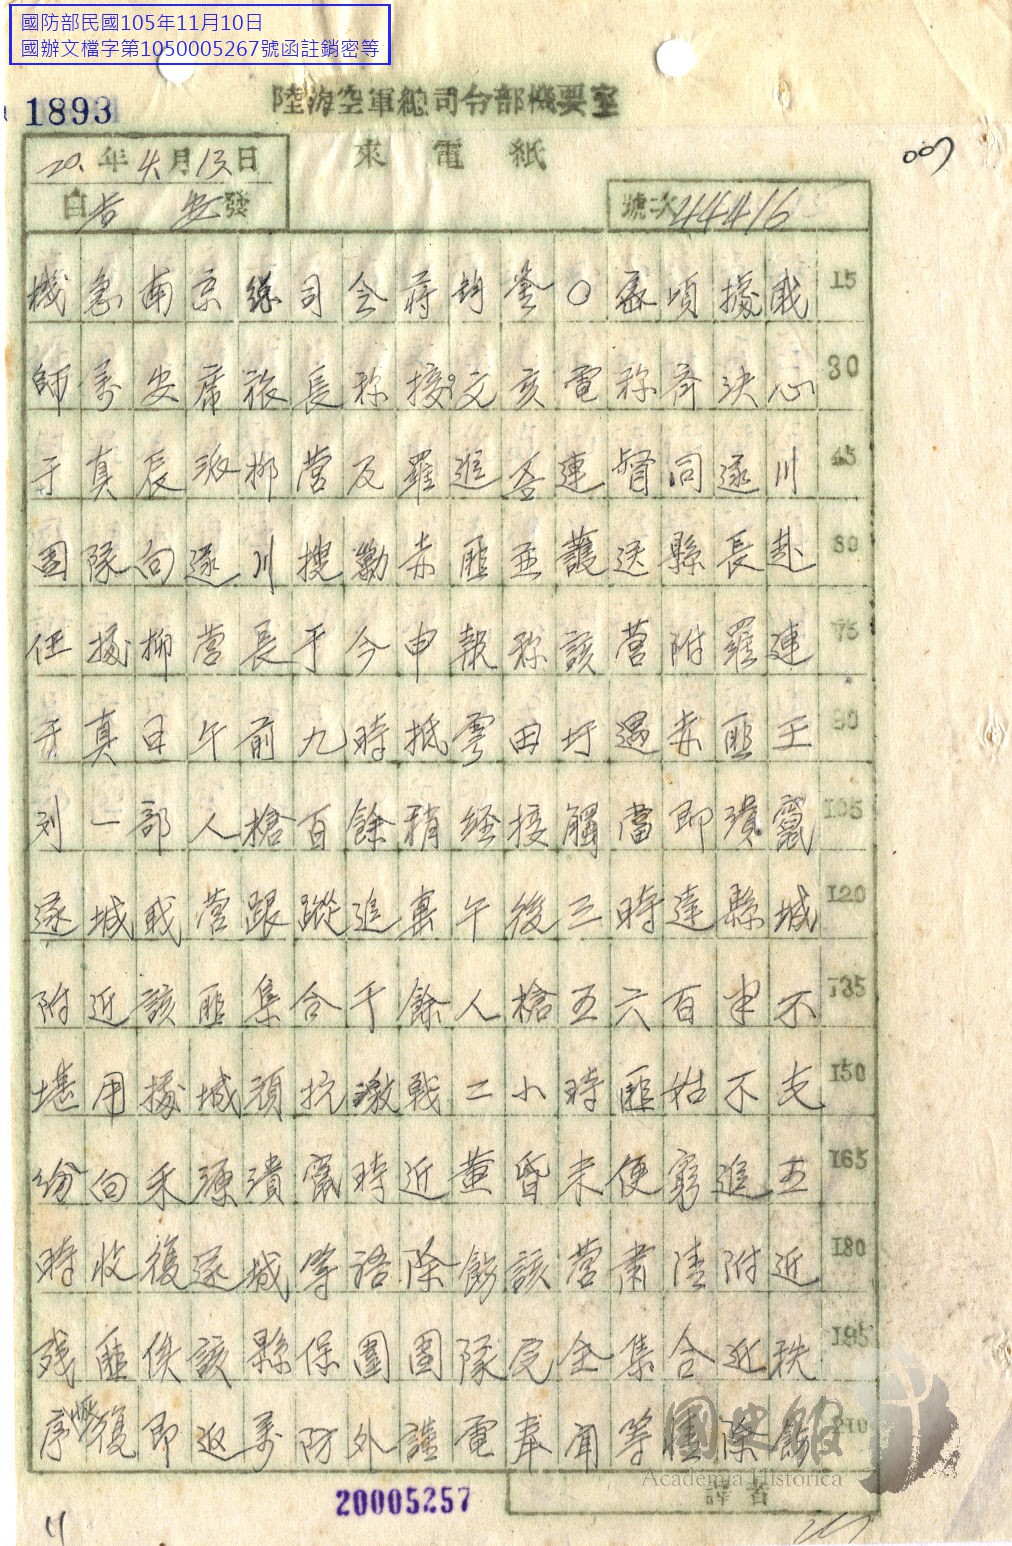 國防部民國105年11月10日
國辦文檔字第1050005267號函註銷密等
1893
陸海空軍總司令部機要室
來電紙
20.年4月13日
007
自吉安發
號次44416
機急南京總司令蔣鈞鑒○密頃據戝 15
師萬安席旅長称接文亥電称齊決心 30
于真辰派柳營及羅進各連督同遂川 45
團隊向遂川搜勦赤匪並護送縣長赴 60
任據柳营長于今申報称該营附羅連 75
于真日午前九時抵雩田圩遇赤匪王 90
刘一部人槍百餘稍經接觸當即潰竄 105
遂城我营跟蹤追襲午後三時達縣城 120
附近該匪集合千餘人槍五六百半不 135
堪用據城頑抗激戰二小時匪始不支 150
纷向禾源潰竄時近黄昏未便窮追五 165
時收復遂城等語除飭該营肅清附近 180
残匪俟該縣保團團隊完全集合近秩 195
序恢復即返萬防外謹電奉闻等情除飭 210
國史館
Academia Historica
譯者
20005257
11